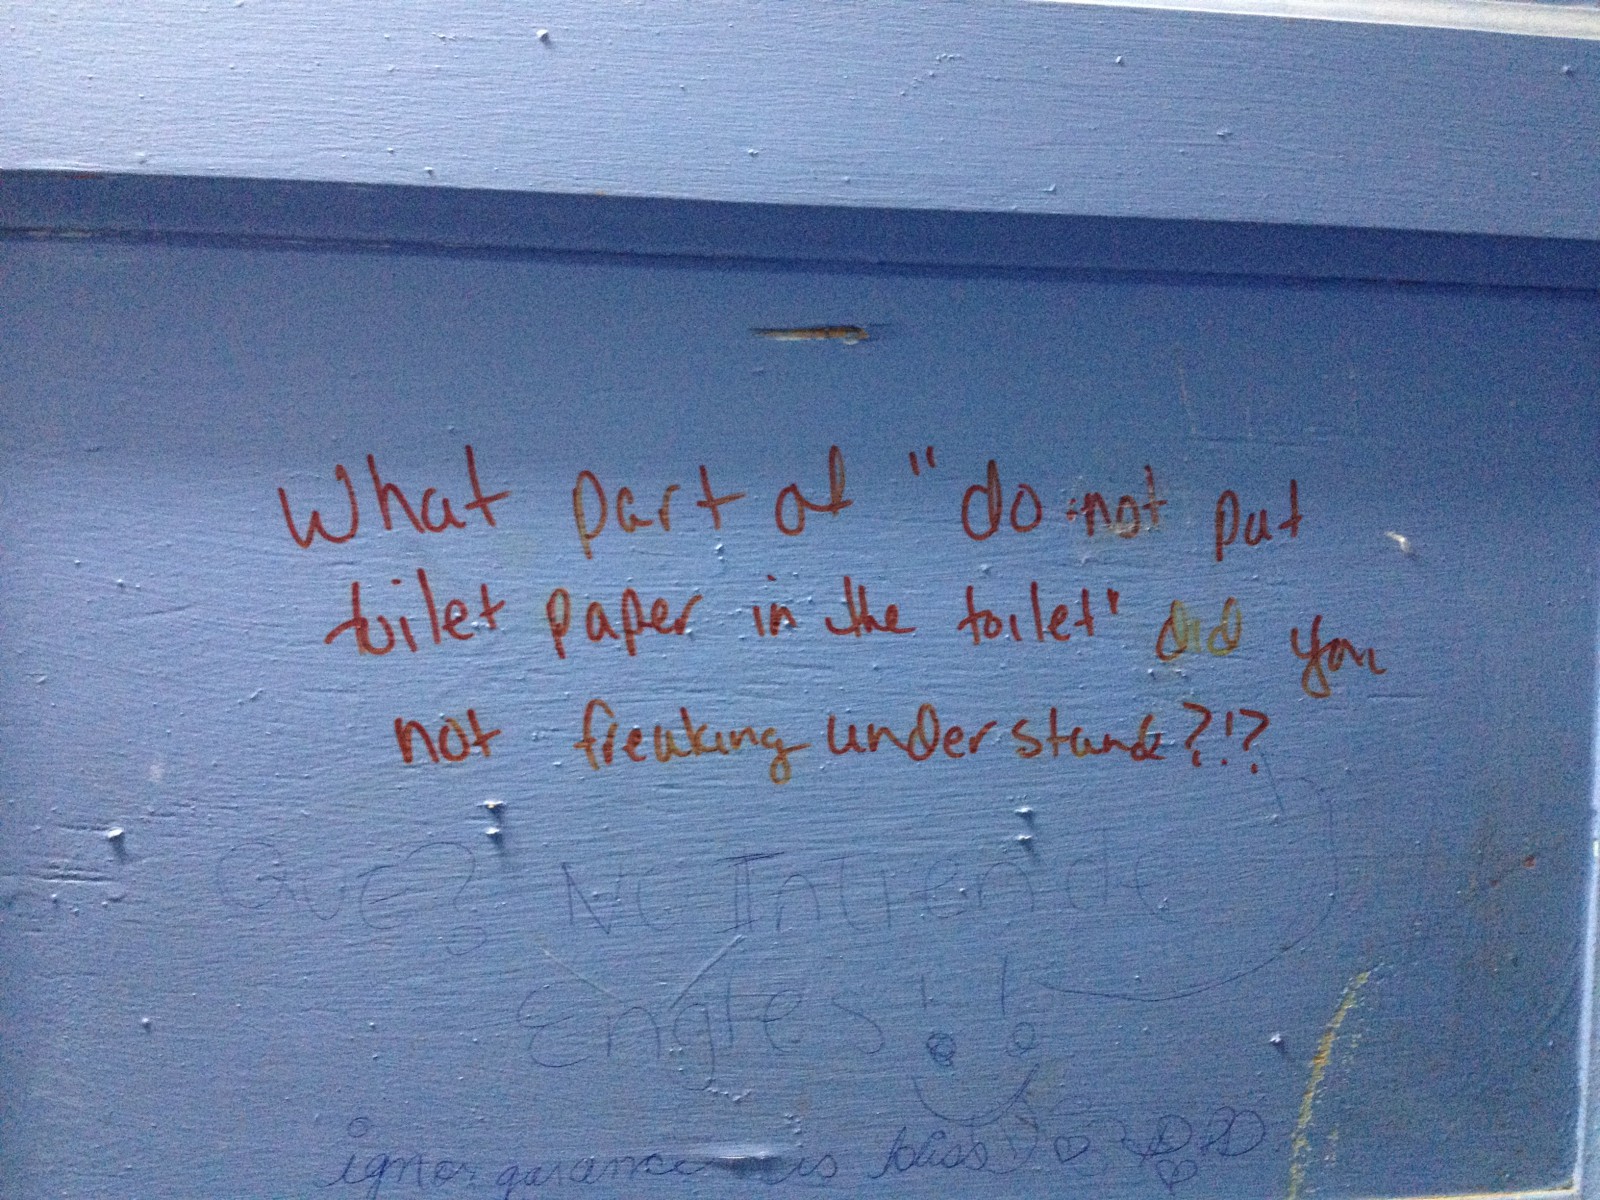 What part of "do not put
toilet paper in the toilet" did you
not freaking understand?!?
Que? No Intiende
Engles!!
is bliss